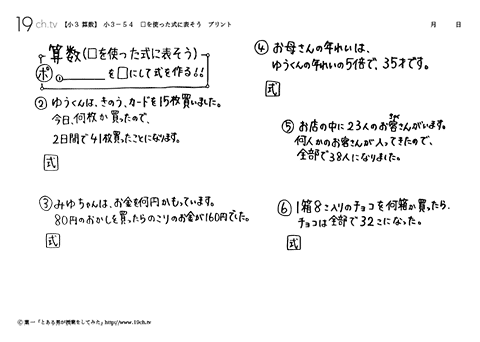 19ch.tv 【小3 算数】 小3－54 □を使った式に表そう プリント 月 日
算数(□を使った式に表そう)
ポ ①＿＿＿＿＿を□にして式を作る!!
② ゆうくんは、きのう、カードを15枚買いました。
今日、何枚か買ったので、
2日間で41枚買ったことになります。
式
③ みゆちゃんは、お金を何円かもっています。
80円のおかしを買ったらのこりのお金が160円でした。
式
④ お母さんの年れいは、
ゆうくんの年れいの5倍で、35才です。
式
⑤ お店の中に23人のお客さんがいます。
何人かのお客さんが入ってきたので、
全部で38人になりました。
式
⑥ 1箱8こ入りのチョコを何箱か買ったら、
チョコは全部で32こになった。
式
© 葉一「とある男が授業をしてみた」http://www.19ch.tv